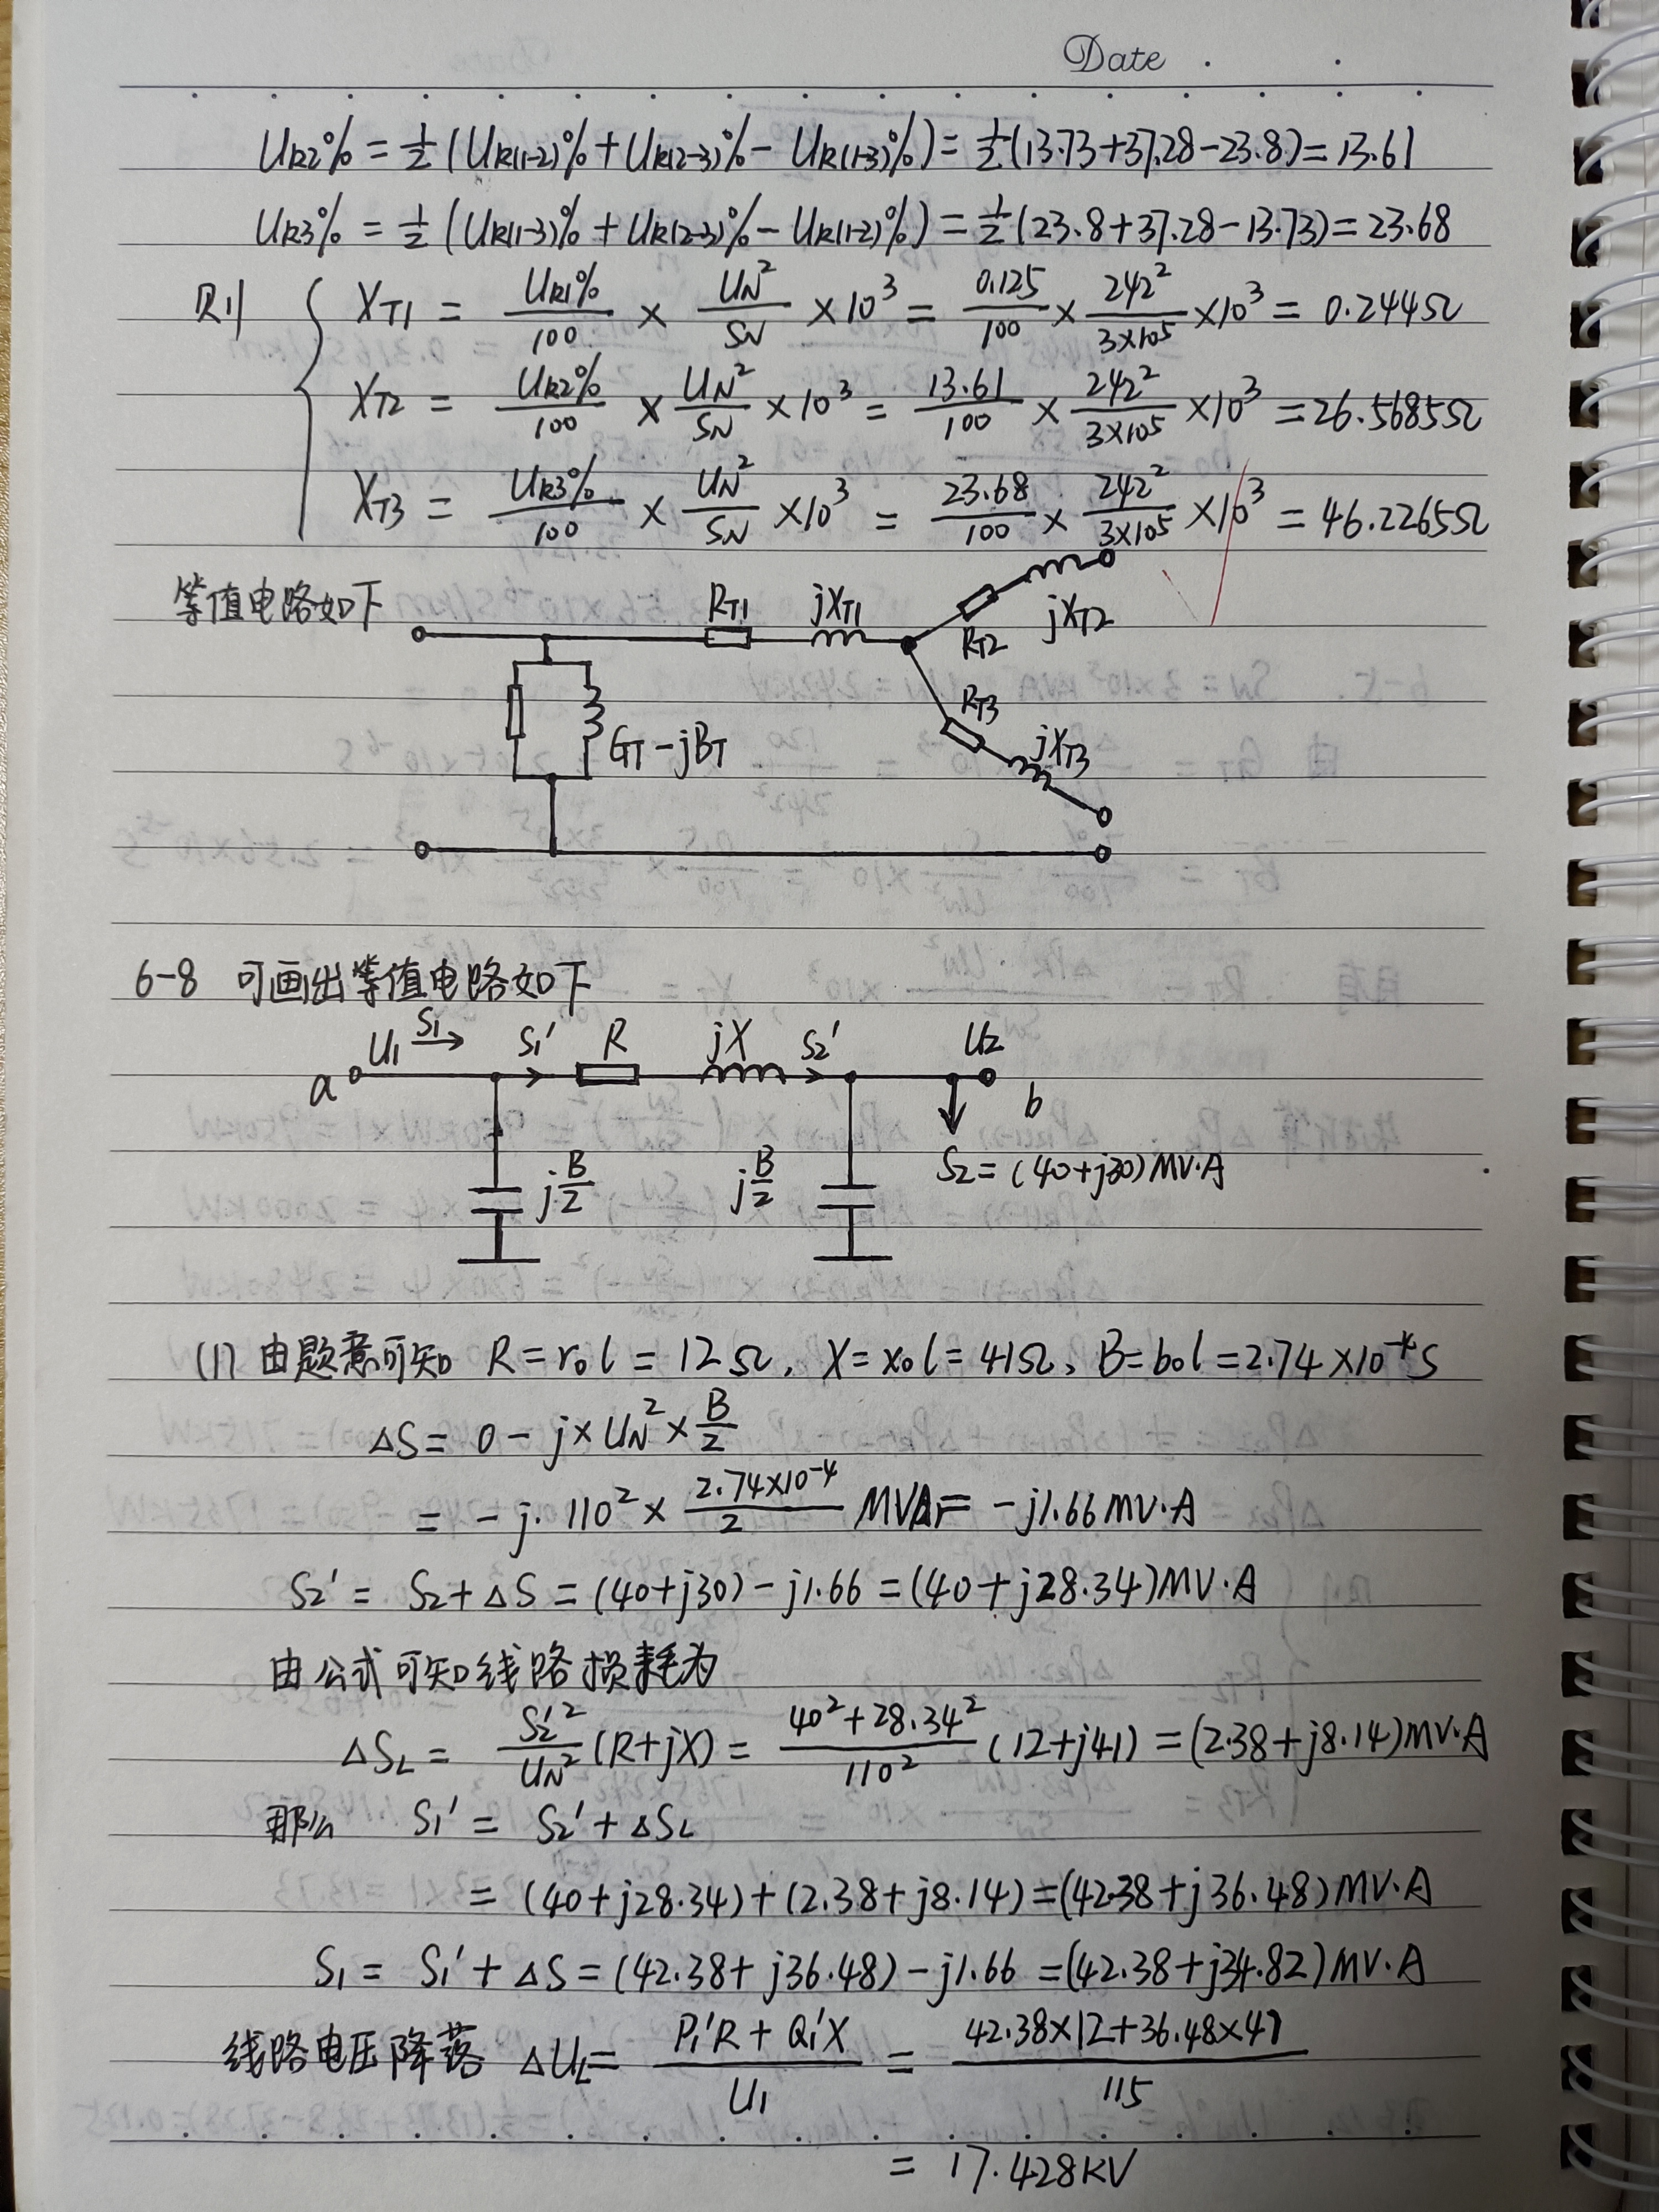 Date
U_{k2}% = 1/2 (U_{k(1-2)}% + U_{k(2-3)}% - U_{k(1-3)}%) = 1/2 (13.73+37.28-23.8) = 13.61
U_{k3}% = 1/2 (U_{k(1-3)}% + U_{k(2-3)}% - U_{k(1-2)}%) = 1/2 (23.8+37.28-13.73) = 23.68
则 { X_{T1} = U_{k1}%/100 × U_N²/S_N × 10³ = 0.125/100 × 242²/(3×10⁵) × 10³ = 0.244Ω
X_{T2} = U_{k2}%/100 × U_N²/S_N × 10³ = 13.61/100 × 242²/(3×10⁵) × 10³ = 26.5685Ω
X_{T3} = U_{k3}%/100 × U_N²/S_N × 10³ = 23.68/100 × 242²/(3×10⁵) × 10³ = 46.2265Ω
等值电路如下
R_{T1} jX_{T1} R_{T2} jX_{T2}
R_{T3} jX_{T3}
G_T - jB_T
6-8 可画出等值电路如下
a U₁ S₁ S₁' R jX S₂' U₂ b
j B/2 j B/2 S₂ = (40+j30) MV·A
(1) 由题意可知 R = r₀l = 12Ω, X = x₀l = 41Ω, B = b₀l = 2.74×10⁻⁴S
ΔS = 0 - j × U_N² × B/2
= - j · 110² × 2.74×10⁻⁴/2 MVA = - j1.66 MV·A
S₂' = S₂ + ΔS = (40+j30) - j1.66 = (40+j28.34) MV·A
由公式可知线路损耗为
ΔS_L = S₂'²/U_N² (R+jX) = (40²+28.34²)/110² (12+j41) = (2.38+j8.14) MV·A
那么 S₁' = S₂' + ΔS_L
= (40+j28.34) + (2.38+j8.14) = (42.38+j36.48) MV·A
S₁ = S₁' + ΔS = (42.38+j36.48) - j1.66 = (42.38+j34.82) MV·A
线路电压降落 ΔU_L = (P₁'R + Q₁'X)/U₁ = (42.38×12+36.48×41)/115
= 17.428KV